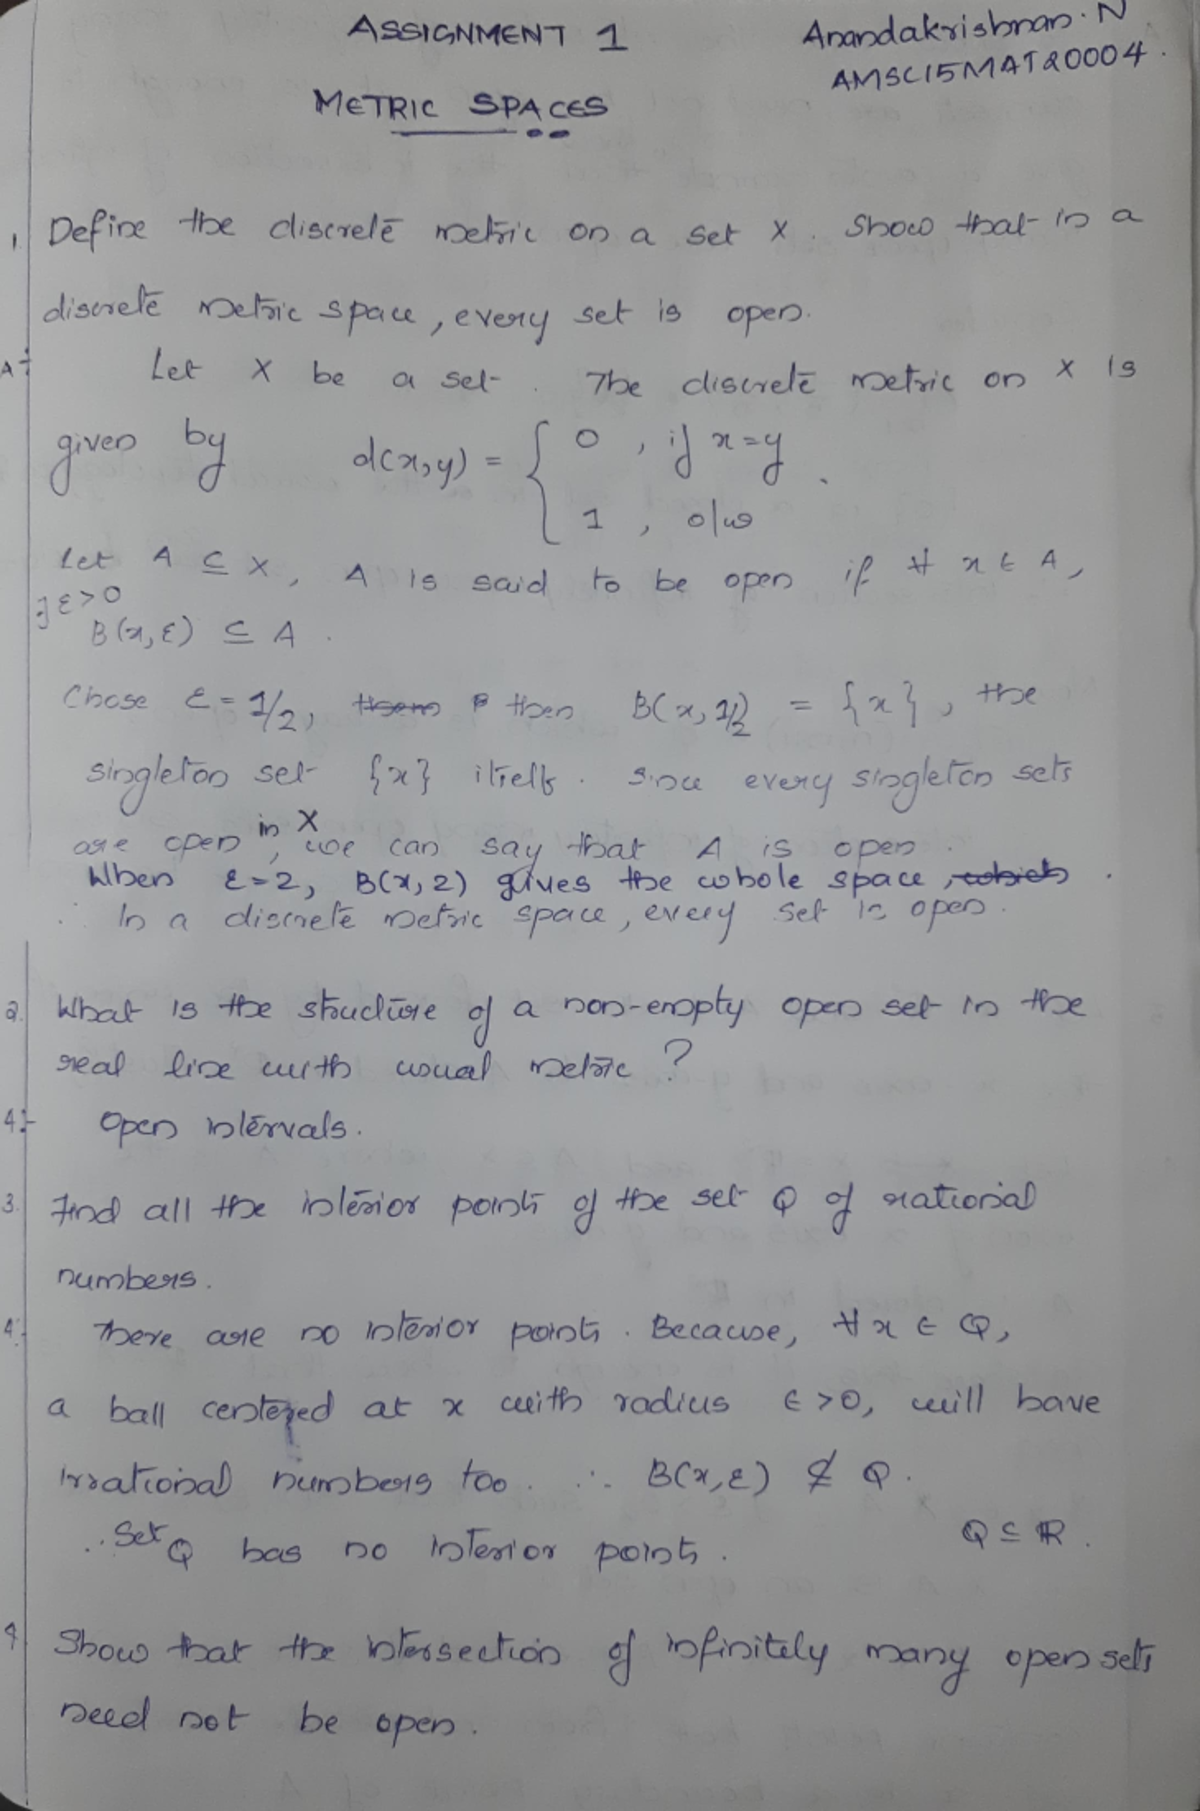 ASSIGNMENT 1
Anandakrishnan. N
AMSC15MAT20004.
METRIC SPACES
1. Define the discrete metric on a set X. Show that in a
discrete metric space, every set is open.
A:- Let X be a set. The discrete metric on X is
given by d(x,y) = { 0, if x=y
1, o/w
Let A ⊆ X, A is said to be open if ∀ x ∈ A,
∃ ε>0
B(x,ε) ⊆ A.
Chose ε=1/2, then B(x,1/2) = {x}, the
singleton set {x} itself. Since every singleton sets
are open in X, we can say that A is open.
When ε=2, B(x,2) gives the whole space, which.
∴ In a discrete metric space, every set is open.
2. What is the structure of a non-empty open set in the
real line with usual metric?
A:- Open intervals.
3. Find all the interior points of the set Q of rational
numbers.
A:- There are no interior points. Because, ∀x ∈ Q,
a ball centered at x with radius ε>0, will have
irrational numbers too. ∴ B(x,ε) ⊄ Q.
∴ Set Q has no interior points. Q ⊆ R.
4. Show that the intersection of infinitely many open sets
need not be open.